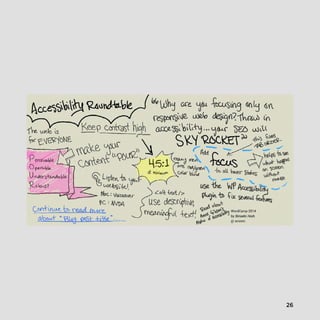 Accessibility Roundtable
The web is
for EVERYONE
Keep contrast high
make your
content "POUR"
Perceivable
Operable
Understandable
Robust
Continue to read more
about "Blog post title"......
Listen to your
website!
Mac: Voiceover
PC: NVDA
4.5:1
<alt text/>
use descriptive
meaningful text!
"Why are you focusing only on
responsive web design? Throw in
accessibility... your SEO will
SKY ROCKET"
Add
focus
to all hover states
helps to see
what happens
on screen
without
mouse
use the WP Accessibility
plugin to fix several features
WordCamp 2014
26